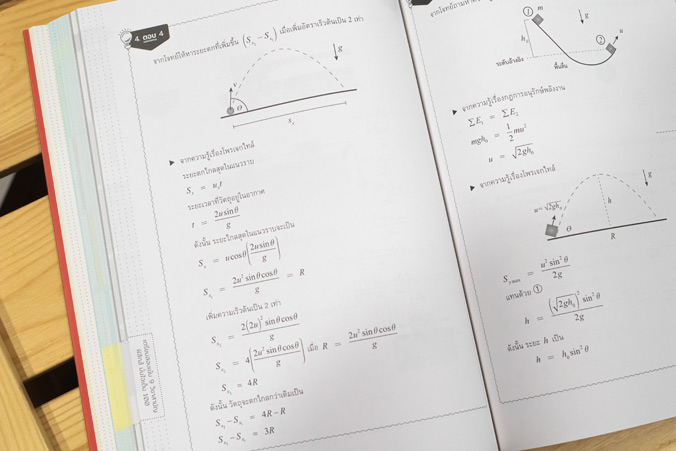 4 ตอบ 4
จากโจทย์ให้หาระยะตกที่เพิ่มขึ้น (Sₓ₂ − Sₓ₁) เมื่อเพิ่มอัตราเร็วต้นเป็น 2 เท่า
g
v
θ
Sₓ
จากความรู้เรื่องโพรเจกไทล์
ระยะตกไกลสุดในแนวราบ
Sₓ = uₓt
ระยะเวลาที่วัตถุอยู่ในอากาศ
t = 2u sinθ / g
ดังนั้น ระยะไกลสุดในแนวราบจะเป็น
Sₓ = u cosθ (2u sinθ / g)
Sₓ₁ = 2u² sinθ cosθ / g = R
เพิ่มความเร็วต้นเป็น 2 เท่า
Sₓ₂ = 2(2u)² sinθ cosθ / g
Sₓ₂ = 4(2u² sinθ cosθ / g) เมื่อ R = 2u² sinθ cosθ / g
Sₓ₂ = 4R
ดังนั้น วัตถุจะตกไกลกว่าเดิมเป็น
Sₓ₂ − Sₓ₁ = 4R − R
Sₓ₂ − Sₓ₁ = 3R
1 m
g
2 u
ระดับอ้างอิง พื้นลื่น
จากความรู้เรื่องกฎการอนุรักษ์พลังงาน
∑E₁ = ∑E₂
mgh₀ = ½mu²
u = √2gh₀
จากความรู้เรื่องโพรเจกไทล์
g
u = √2gh₀
h
θ
R
Sy max = u² sin²θ / 2g
แทนด้วย 1
h = (√2gh₀)² sin²θ / 2g
ดังนั้น ระยะ h เป็น
h = h₀ sin²θ